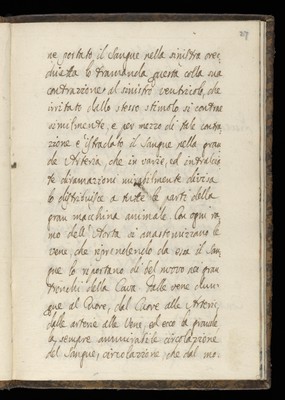 27
ne portato il Sangue nella sinistra orec,
chietta lo tramanda questa colla sua
contrazione al sinistro ventricolo, che
irritato dallo stesso stimolo si contrae
similmente, e per mezzo di tale contra,
zione è istradato il Sangue nella gran
de Arteria, che in varie, ed intralcia
te diramazioni mirabilmente divisa
lo distribuisce a tutte le parti della
gran macchina animale. Con ogni ra,
mo dell'Aorta si anastomizzano le
vene, che riprendendo da essa il San,
gue lo riportano di bel nuovo nei gran
tronchi della Cava. Dalle vene dun,
que al Cuore, dal Cuore alle Arterie,
dalle arterie alle Vene, ed ecco la grande
la sempre ammirabile circolazione
del Sangue, circolazione, che dal mo,